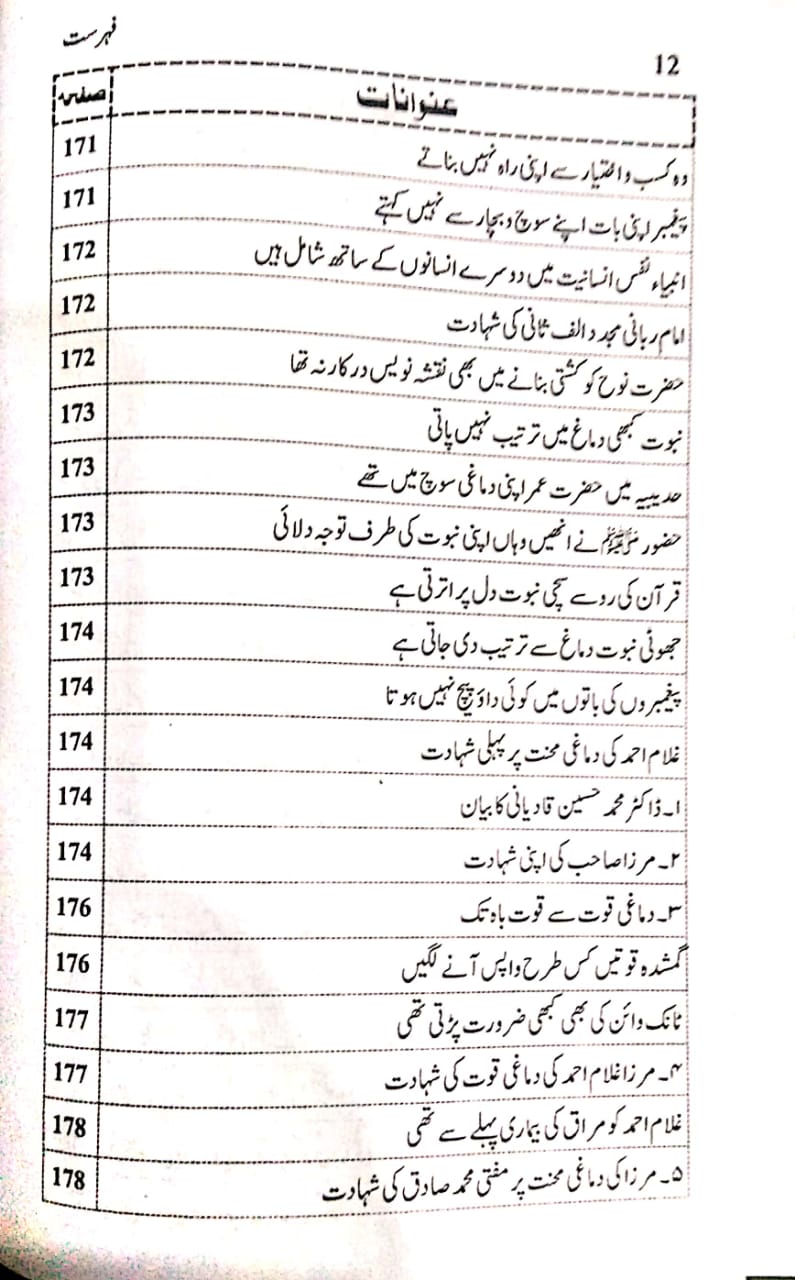 12
فہرست
عنوانات صفحہ
وہ کسب و اختیار سے اپنی راہ نہیں بناتے 171
پیغمبر اپنی بات اپنے سوچ و بچار سے نہیں کہتے 171
انبیاء نفس انسانیت میں دوسرے انسانوں کے ساتھ شامل ہیں 172
امام ربانی مجدد الف ثانی کی شہادت 172
حضرت نوح کو کشتی بنانے میں بھی نقشہ نویس درکار نہ تھا 172
نبوت کبھی دماغ میں ترتیب نہیں پاتی 173
حدیبیہ میں حضرت عمر اپنی دماغی سوچ میں تھے 173
حضور ﷺ نے انھیں وہاں اپنی نبوت کی طرف توجہ دلائی 173
قرآن کی رو سے سچی نبوت دل پر اترتی ہے 173
جھوٹی نبوت دماغ سے ترتیب دی جاتی ہے 174
پیغمبروں کی باتوں میں کوئی داؤ پیچ نہیں ہوتا 174
غلام احمد کی دماغی محنت پر پہلی شہادت 174
۱۔ ڈاکٹر محمد حسین قادیانی کا بیان 174
۲۔ مرزا صاحب کی اپنی شہادت 174
۳۔ دماغی قوت سے قوت باہ تک 176
گمشدہ قوتیں کس طرح واپس آنے لگیں 176
ٹانک وائن کی بھی کبھی ضرورت پڑتی تھی 177
۴۔ مرزا غلام احمد کی دماغی قوت کی شہادت 177
غلام احمد کو مراق کی بیماری پہلے سے تھی 178
۵۔ مرزا کی دماغی محنت پر مفتی محمد صادق کی شہادت 178